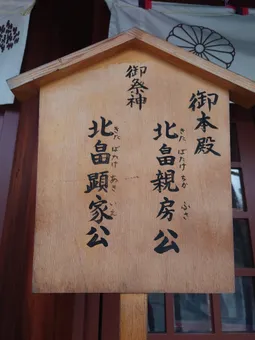 御本殿
御祭神
北畠親房公
きたばたけちかふさ
北畠顕家公
きたばたけあきいえ